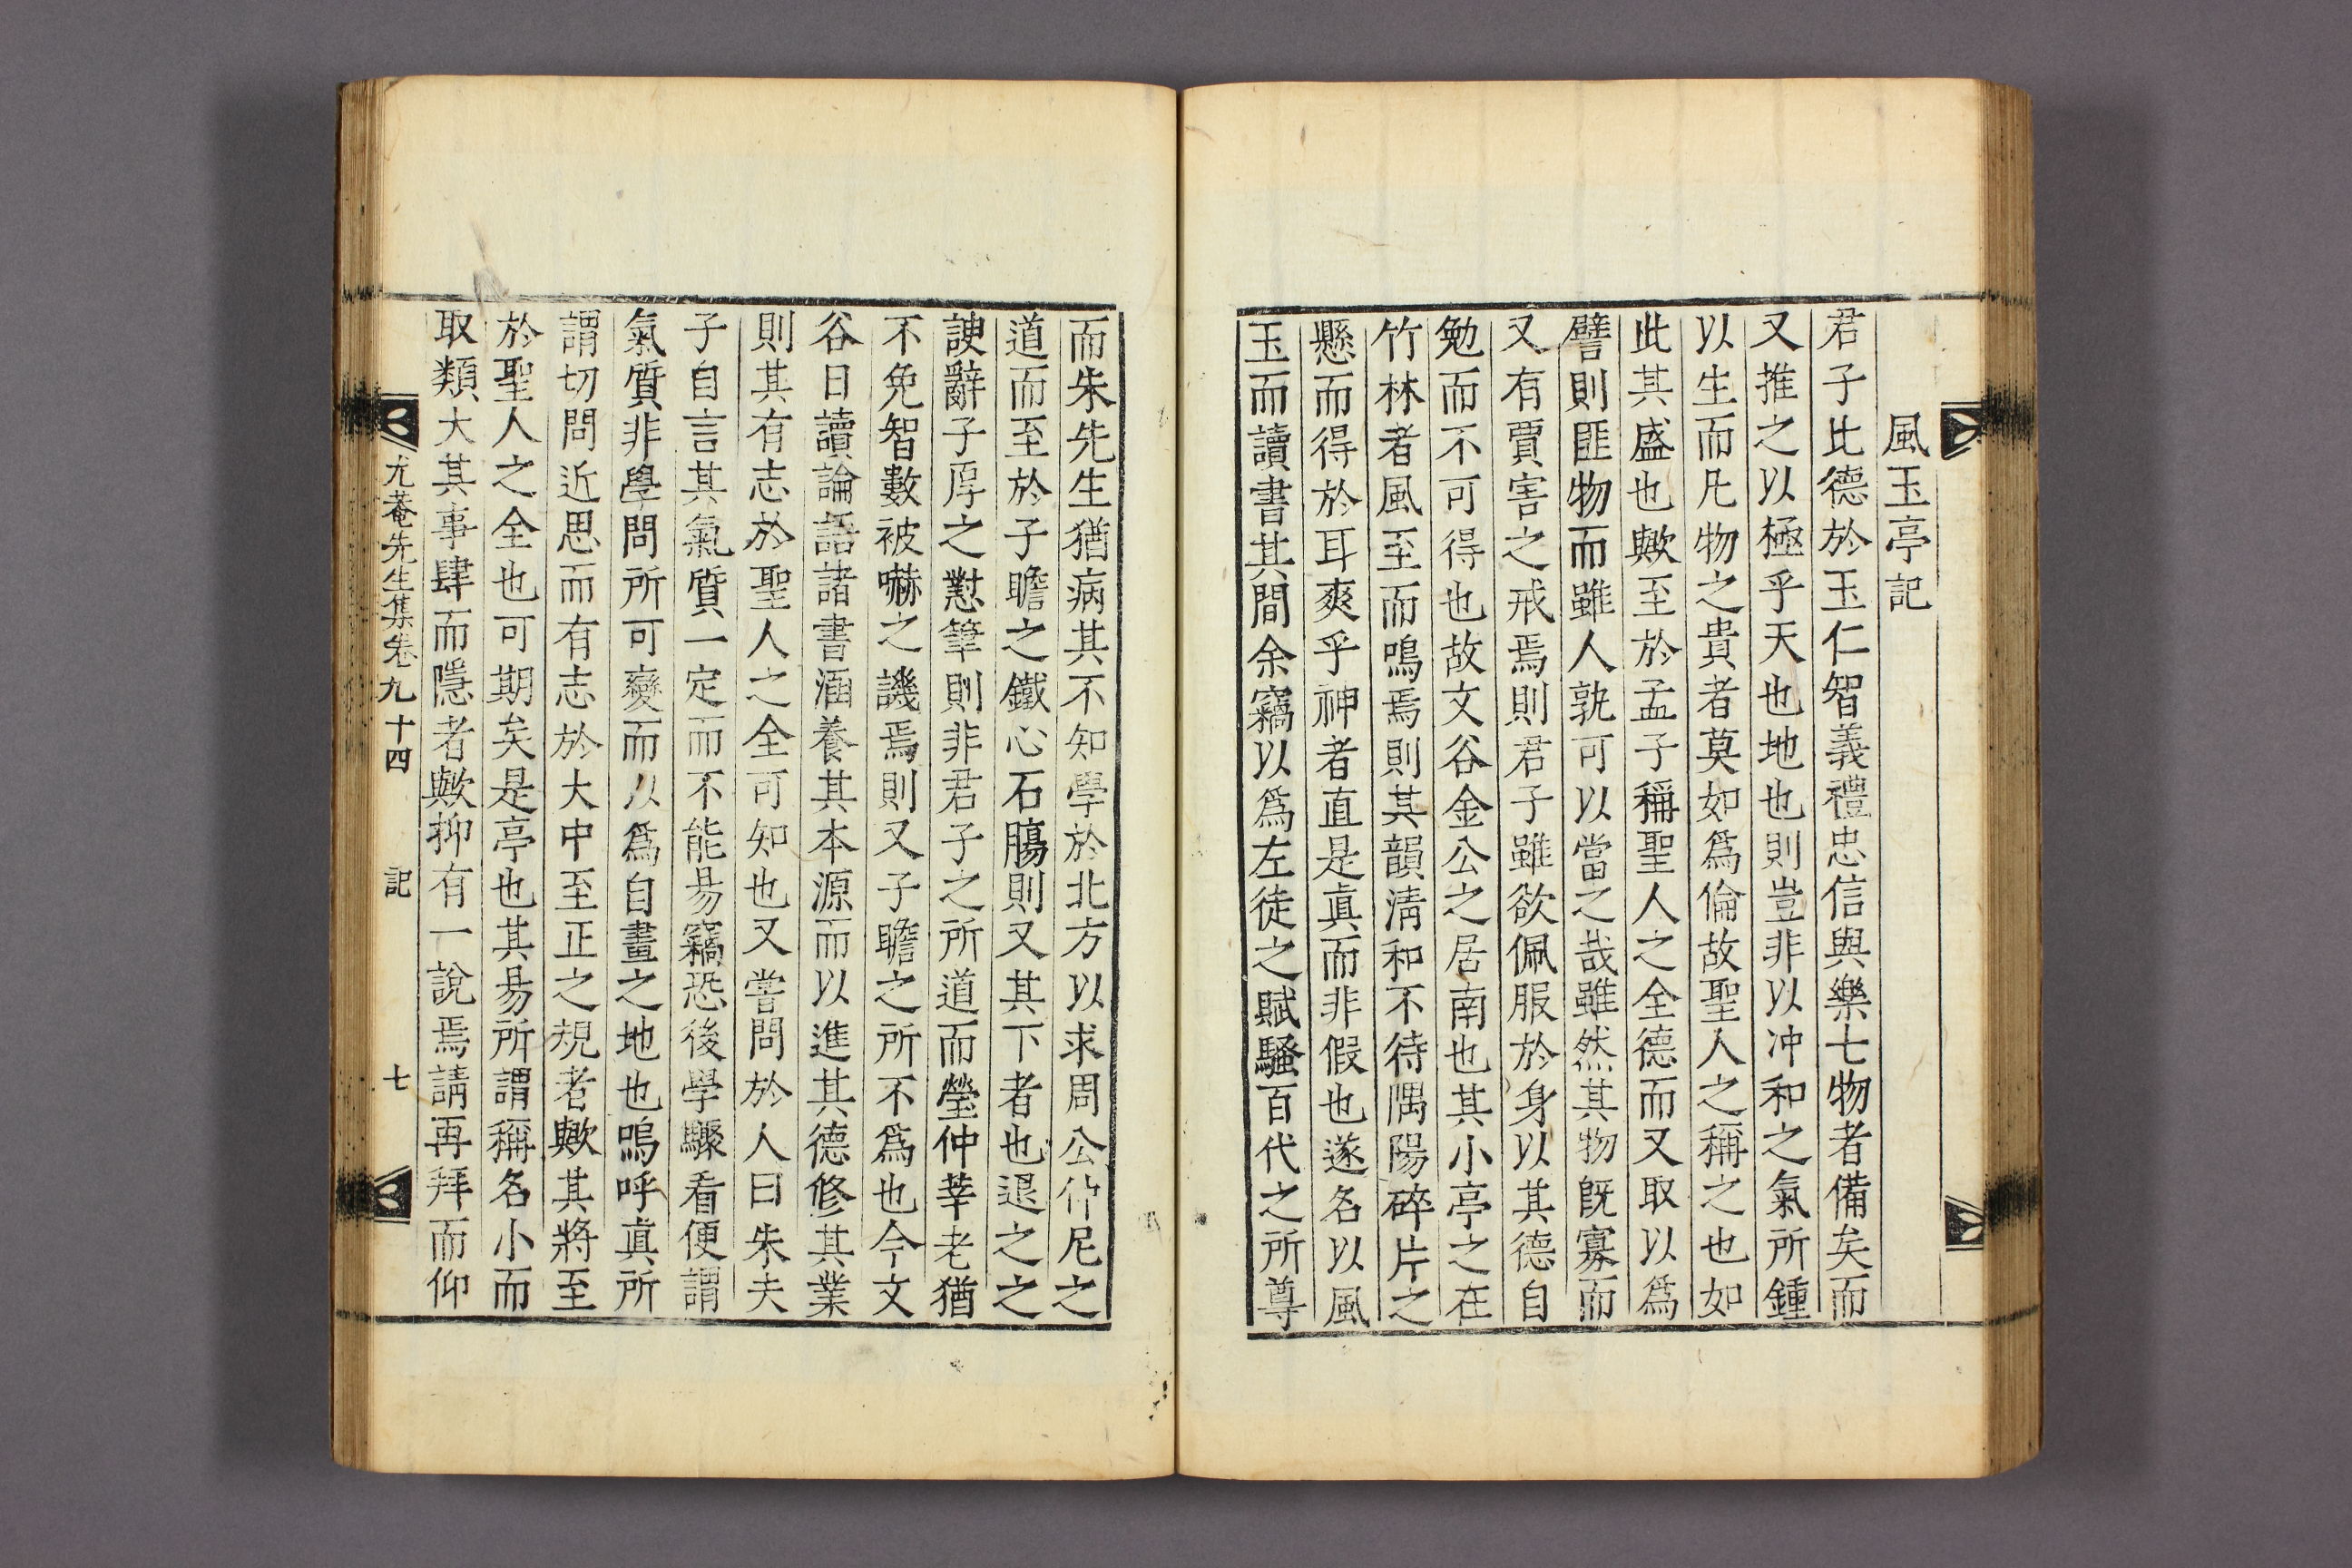 風玉亭記
君子比德於玉仁智義禮忠信與樂七物者備矣而
又推之以極乎天也地也則豈非以冲和之氣所鍾
以生而凡物之貴者莫如爲倫故聖人之稱之也如
此其盛也歟至於孟子稱聖人之全德而又取以爲
譬則匪物而雖人孰可以當之哉雖然其物旣寡而
又有賈害之戒焉則君子雖欲佩服於身以其德自
勉而不可得也故文谷金公之居南也其小亭之在
竹林者風至而鳴焉則其韻淸和不待隅陽碎片之
懸而得於耳爽乎神者直是眞而非假也遂名以風
玉而讀書其間余竊以爲左徒之賦騷百代之所尊
而朱先生猶病其不知學於北方以求周公仲尼之
道而至於子瞻之鐵心石膓則又其下者也退之之
諛辭子厚之懟筆則非君子之所道而瑩仲莘老猶
不免智數被嚇之譏焉則又子瞻之所不爲也今文
谷日讀論語諸書涵養其本源而以進其德修其業
則其有志於聖人之全可知也又嘗問於人曰朱夫
子自言其氣質一定而不能易竊恐後學驟看便謂
氣質非學問所可變而以爲自畫之地也嗚呼眞所
謂切問近思而有志於大中至正之規者歟其將至
於聖人之全也可期矣是亭也其易所謂稱名小而
取類大其事肆而隱者歟抑有一說焉請再拜而仰
尤菴先生集卷九十四 記 七